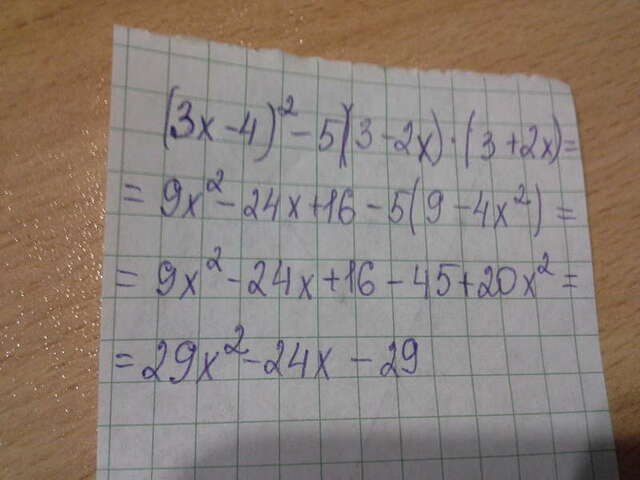 (3x-4)²-5(3-2x)·(3+2x)=
=9x²-24x+16-5(9-4x²)=
=9x²-24x+16-45+20x²=
=29x²-24x-29